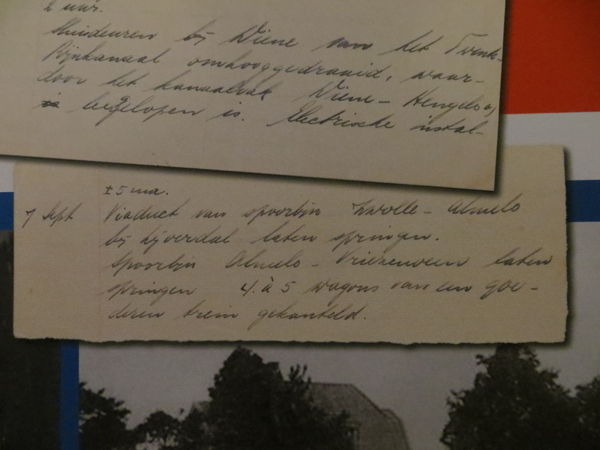 2 uur.
Sluisdeuren bij Wiene van het Twente-
Rijnkanaal omhooggedraaid, waar-
door het kanaalvak Wiene - Hengelo
leeggelopen is. Electrische instal-
± 5 ma.
7 Sept Viaduct van spoorlijn Zwolle - Almelo
bij Nijverdal laten springen.
Spoorlijn Almelo - Vriezenveen laten
springen 4 à 5 wagons van een goe-
deren trein gekanteld.